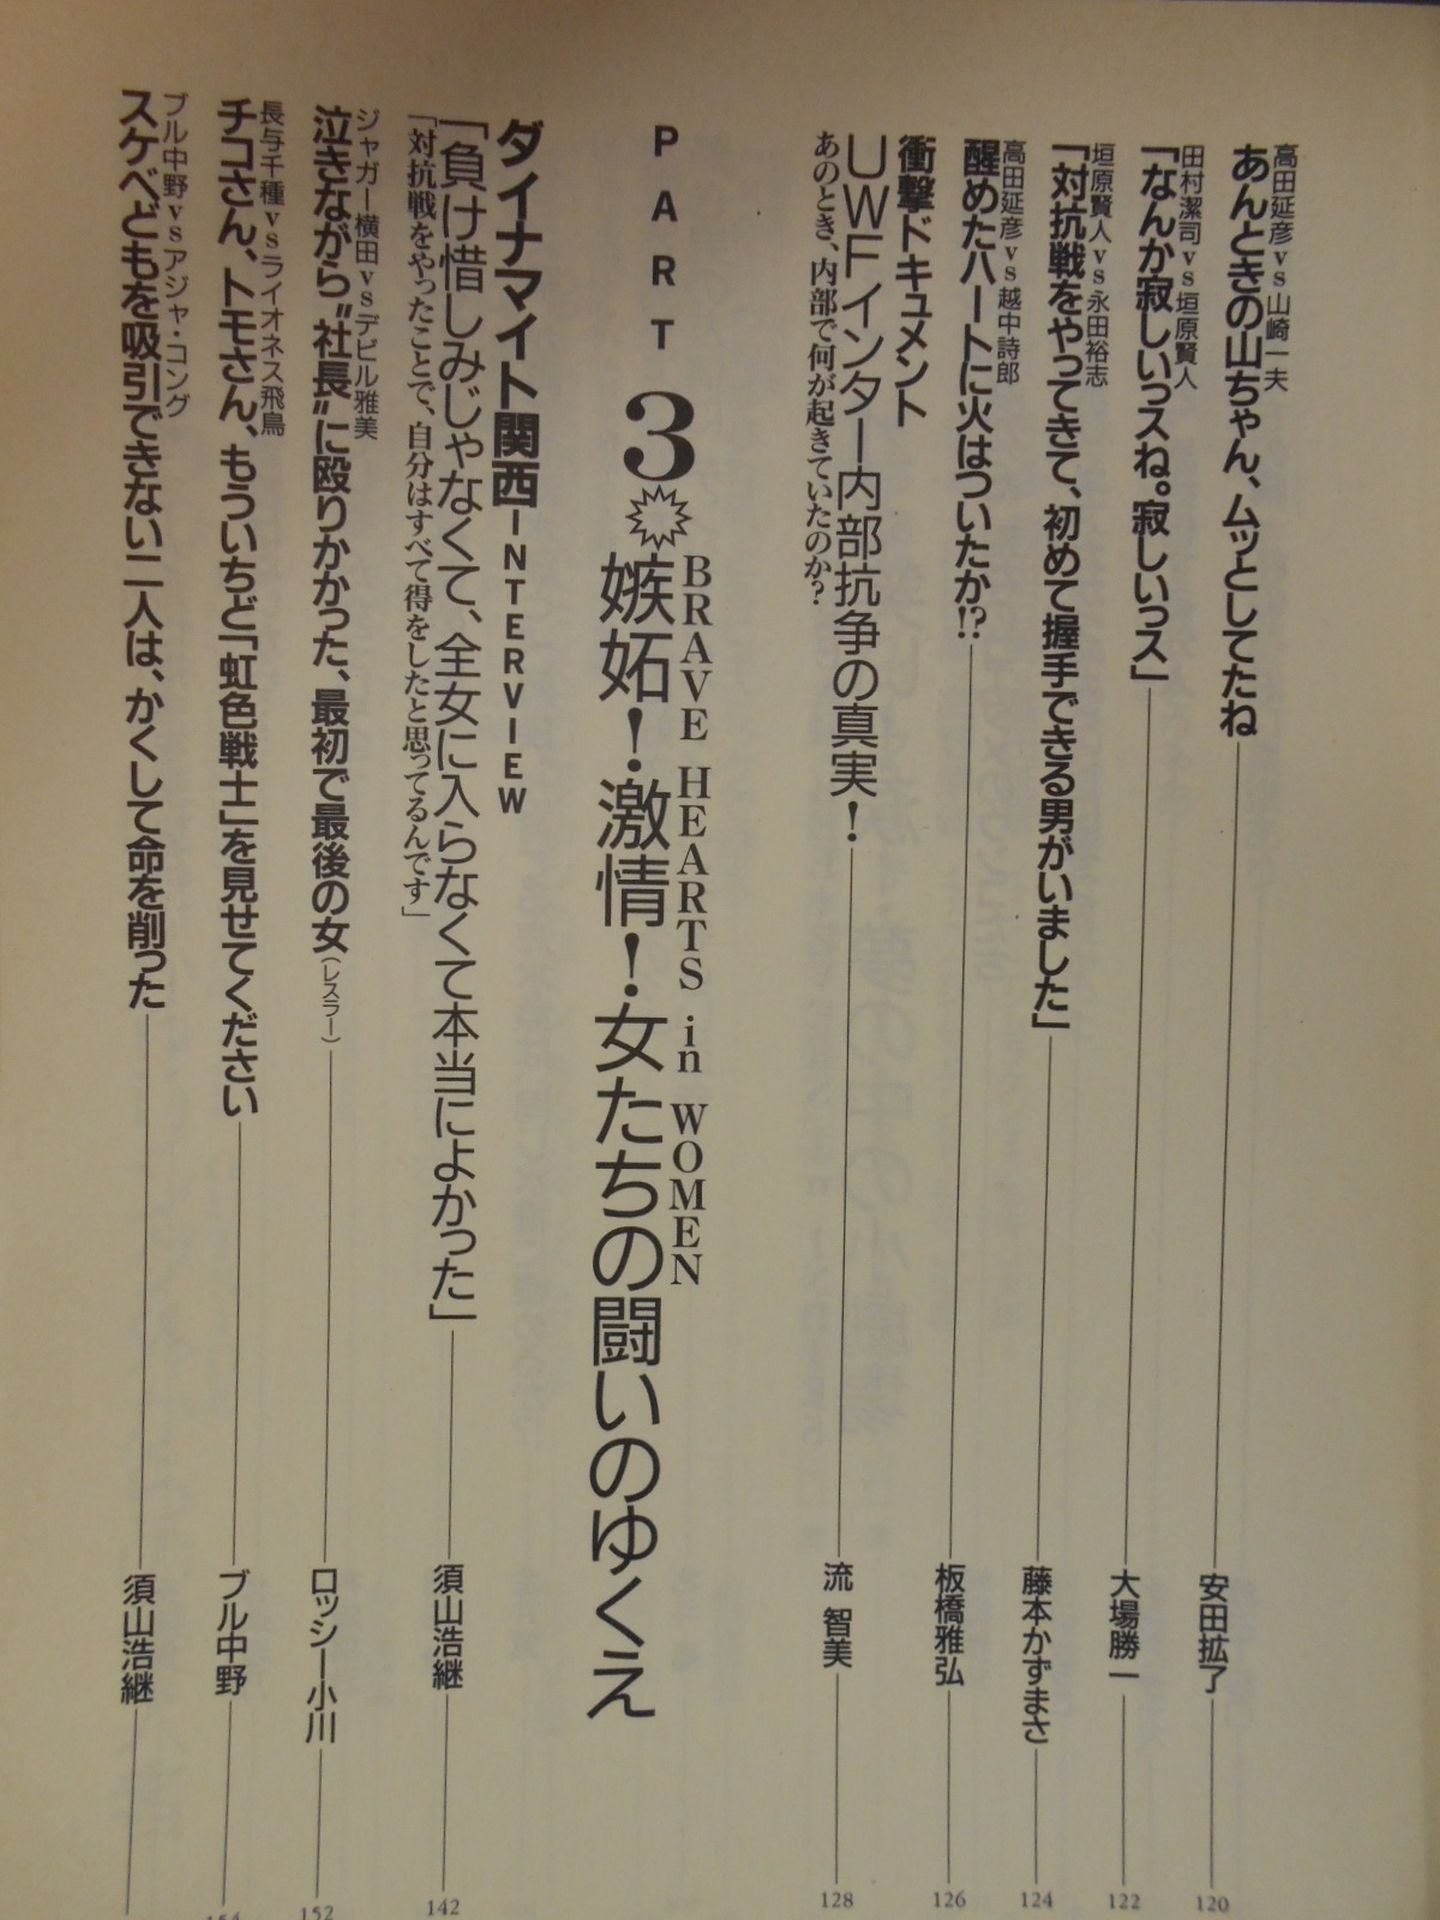 高田延彦vs山崎一夫
あんときの山ちゃん、ムッとしてたね
安田拡了
120
田村潔司vs垣原賢人
「なんか寂しいっスね。寂しいっス」
大場勝一
122
垣原賢人vs永田裕志
「対抗戦をやってきて、初めて握手できる男がいました」
藤本かずまさ
124
高田延彦vs越中詩郎
醒めたハートに火はついたか!?
板橋雅弘
126
衝撃ドキュメント
UWFインター内部抗争の真実!
あのとき、内部で何が起きていたのか?
流 智美
128
PART 3
BRAVE HEARTS in WOMEN
嫉妬!激情!女たちの闘いのゆくえ
ダイナマイト関西-INTERVIEW
「負け惜しみじゃなくて、全女に入らなくて本当によかった」
「対抗戦をやったことで、自分はすべて得をしたと思ってるんです」
須山浩継
142
ジャガー横田vsデビル雅美
泣きながら“社長”に殴りかかった、最初で最後の女(レスラー)
ロッシー小川
152
長与千種vsライオネス飛鳥
チコさん、トモさん、もういちど「虹色戦士」を見せてください
ブル中野
154
ブル中野vsアジャ・コング
スケベどもを吸引できない二人は、かくして命を削った
須山浩継